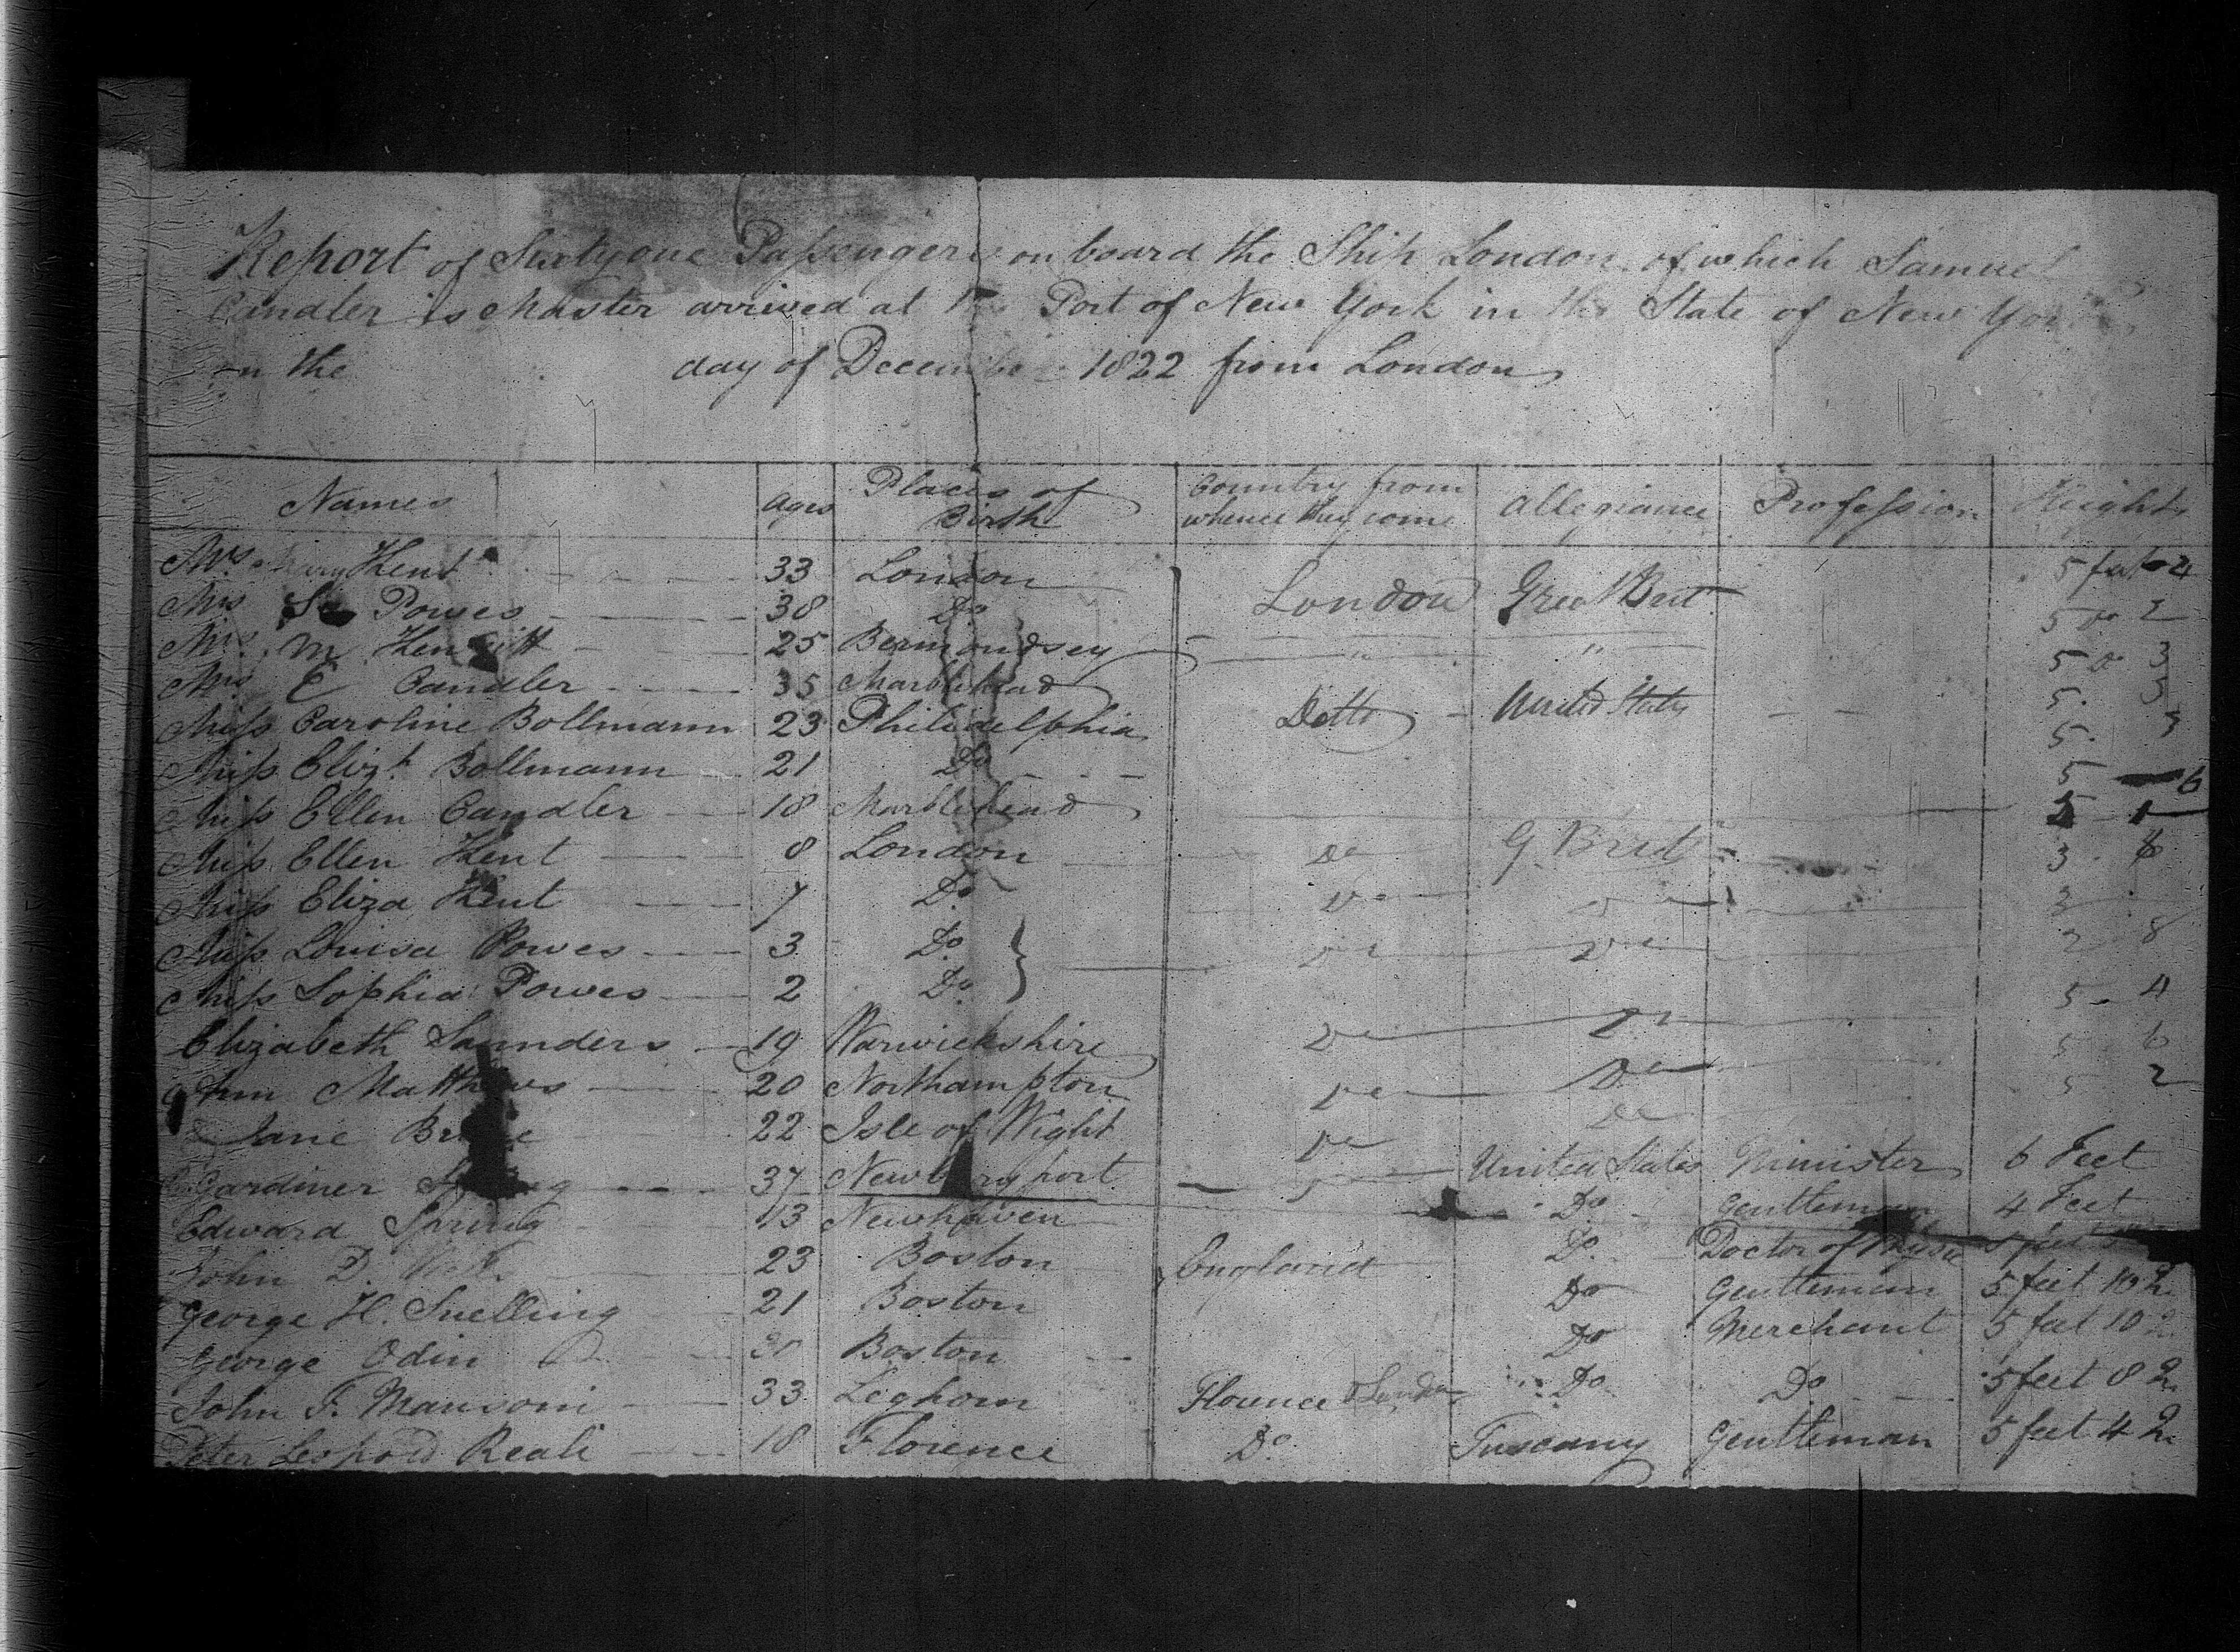 Report of Sixty one Passengers on board the Ship London of which Samuel
Candler is Master arrived at the Port of New York in the State of New York
on the day of December 1822 from London
Names Ages Places of Birth Country from whence they come Allegiance Profession Height
Mrs. Mary Kent 33 London London Great Brit 5 feet 4
Mrs Powes 38 Do 5 Do 2
Mrs. M 25 Bermondsey " " 5 Do 3
Mrs E Candler 35 Marblehead 5. 3
Miss Caroline Bollmann 23 Philidelphia Ditto United States 5. 3
Miss Elizt. Bollmann 21 Do 5 6
Miss Ellen Candler 18 Marblehead 5 1
Miss Ellen Kent 8 London Do G. Brit 3.
Miss Eliza Kent 7 Do Do Do 3
Miss Louisa Powes 3 Do Do Do 2 8
Miss Sophia Powes 2 Do
Elizabeth Saunders 19 Warwickshire Do Do 5 4
Ann Matthews 20 Northampton Do Do 5 6
Jane 22 Isle of Wight Do Do 5 2
Gardiner Spring 37 Newburyport United States Minister 6 Feet
Edward Spring 13 Newhaven Do Gentleman 4 Feet
John D. 23 Boston England Do Doctor of Physic 5 feet
George H. Snelling 21 Boston Do Gentleman 5 feet 10
George Odin 30 Boston Do Merchant 5 feet 10
John F. Mansoni 33 Leghorn Florence & London Do Do 5 feet 8
Peter Leopold Reali 18 Florence Do Tuscany Gentleman 5 feet 4